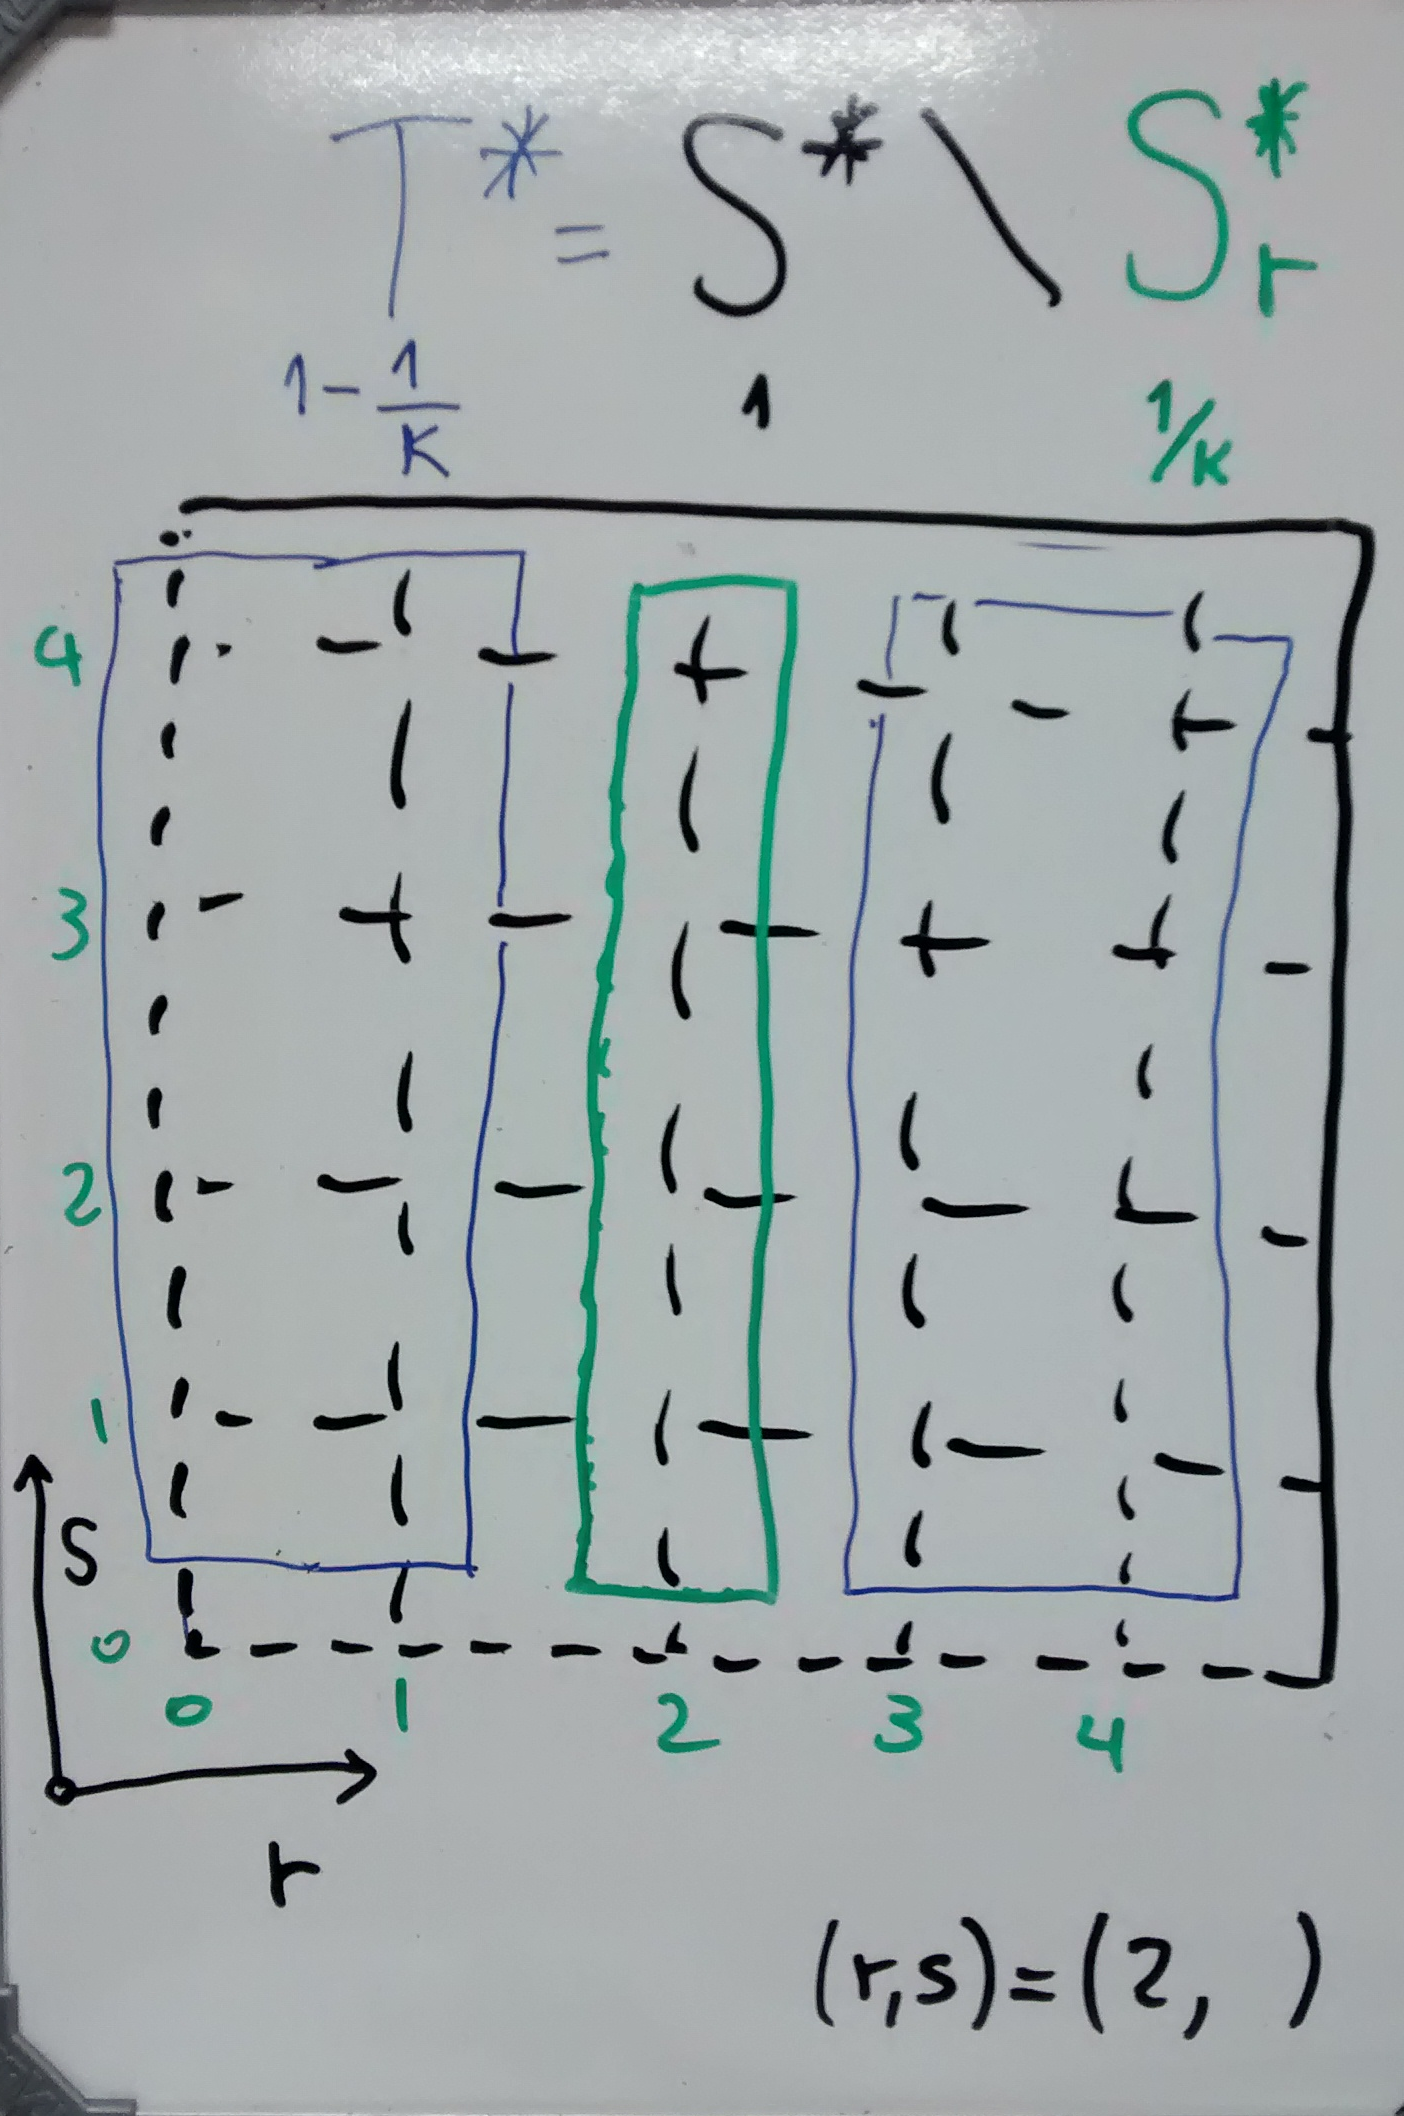 T* = S* \ S*r
1 - 1/K 1 1/K
4
3
2
1
S
0
0 1 2 3 4
r
(r,s)=(2, )